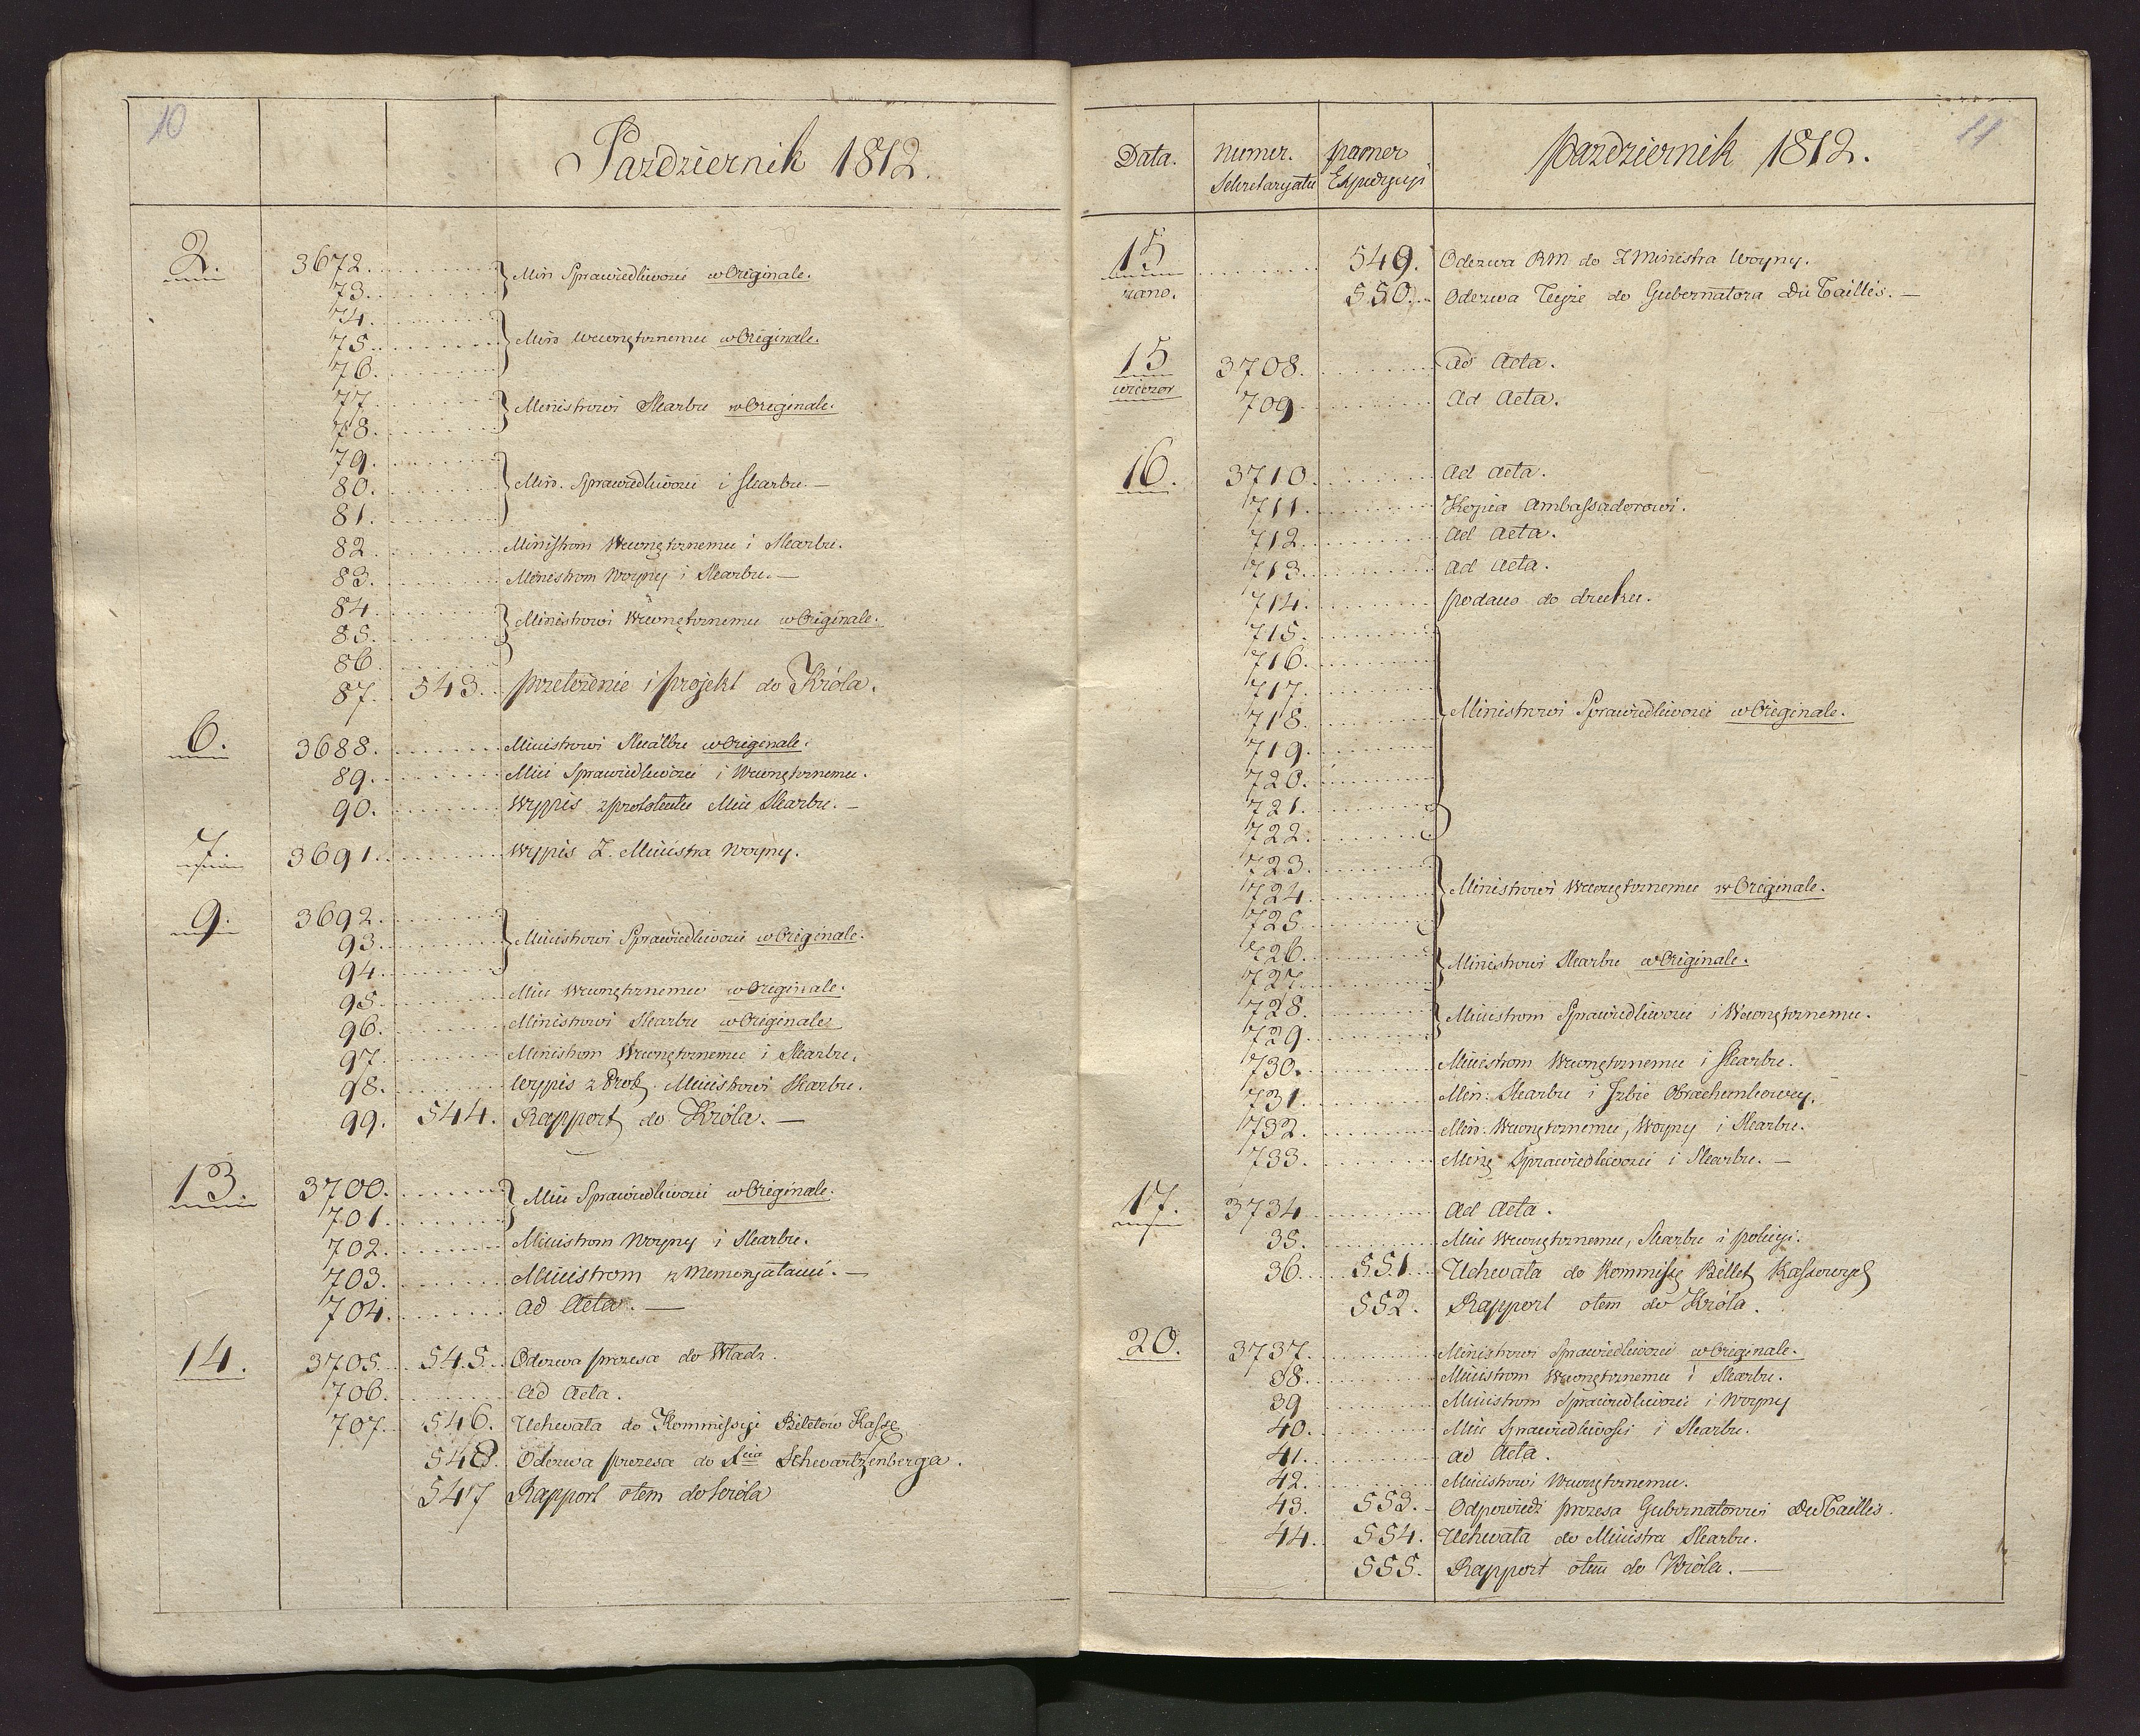 10
Pazdziernik 1812.
2. 3672. Min Sprawiedliwości w Originale.
73.
74.
75. Min Wewnętrznemu w Originale.
76.
77. Ministrowi Skarbu w Originale.
78.
79.
80. Min. Sprawiedliwości i Skarbu. —
81.
82. Ministrom Wewnętrznemu i Skarbu.
83. Ministrom Woyny i Skarbu. —
84. Ministrowi Wewnętrznemu w Originale.
85.
86.
87. 543. przełożenie i projekt do Króla.
6. 3688. Ministrowi Skarbu w Originale.
89. Min Sprawiedliwości i Wewnętrznemu.
90. Wypis z protokułu Min Skarbu. —
7. 3691. Wypis Z. Ministra Woyny.
9. 3692.
93. Ministrowi Sprawiedliwości w Originale.
94.
95. Min Wewnętrznemu w Originale.
96. Ministrowi Skarbu w Originale
97. Ministrom Wewnętrznemu i Skarbu.
98. Wypis z Prot. Ministrowi Skarbu.
99. 544. Rapport do Króla. —
13. 3700. Min Sprawiedliwości w Originale.
701.
702. Ministrom Woyny i Skarbu.
703. Ministrom z Memoryałami. —
704. ad Acta. —
14. 3705. 545. Odezwa prezesa do Władz.
706. ad Acta.
707. 546. Uchwała do Kommissyi Biletów Kasse
548. Odezwa prezesa do Xcia Schwartzenberga.
547 Rapport otem do Króla
11
Data. numer. Sekretaryatu numer Expedycyi Pazdziernik 1812.
15 rano. 549. Odezwa RM do Z Ministra Woyny.
550. Odezwa Teyże do Gubernatora Du Taillis. —
15 wieczor 3708. ad Acta.
709 Ad Acta.
16. 3710. ad acta.
711. Kopia Ambassadorowi.
712. ad Acta.
713. ad Acta.
714. podano do druku.
715.
716.
717.
718. Ministrowi Sprawiedliwości w Originale.
719.
720.
721.
722.
723.
724. Ministrowi Wewnętrznemu w Originale.
725.
726. Ministrowi Skarbu w Originale.
727.
728. Ministrom Sprawiedliwości i Wewnętrznemu.
729.
730. Ministrom Wewnętrznemu i Skarbu.
731. Min: Skarbu i Izbie Obrachunkowey.
732. Min. Wewnętrznemu, Woyny i Skarbu.
733. Sprawiedliwości i Skarbu. —
17. 3734 ad Acta.
35. Min Wewnętrznemu, Skarbu i policyi.
36. 551. Uchwała do Kommissy Billet Kassowych
552. Rapport otem do Króla.
20. 3737. Ministrowi Sprawiedliwości w Originale.
38. Ministrom Wewnętrznemu i Skarbu.
39 Ministrom Sprawiedliwości i Woyny
40. Min Sprawiedliwości i Skarbu.
41. ad Acta.
42. Ministrowi Wewnętrznemu.
43. 553. Odpowiedź prezesa Gubernatorowi Du Taillis.
44. 554. Uchwała do Ministra Skarbu.
555. Rapport otem do Króla. —